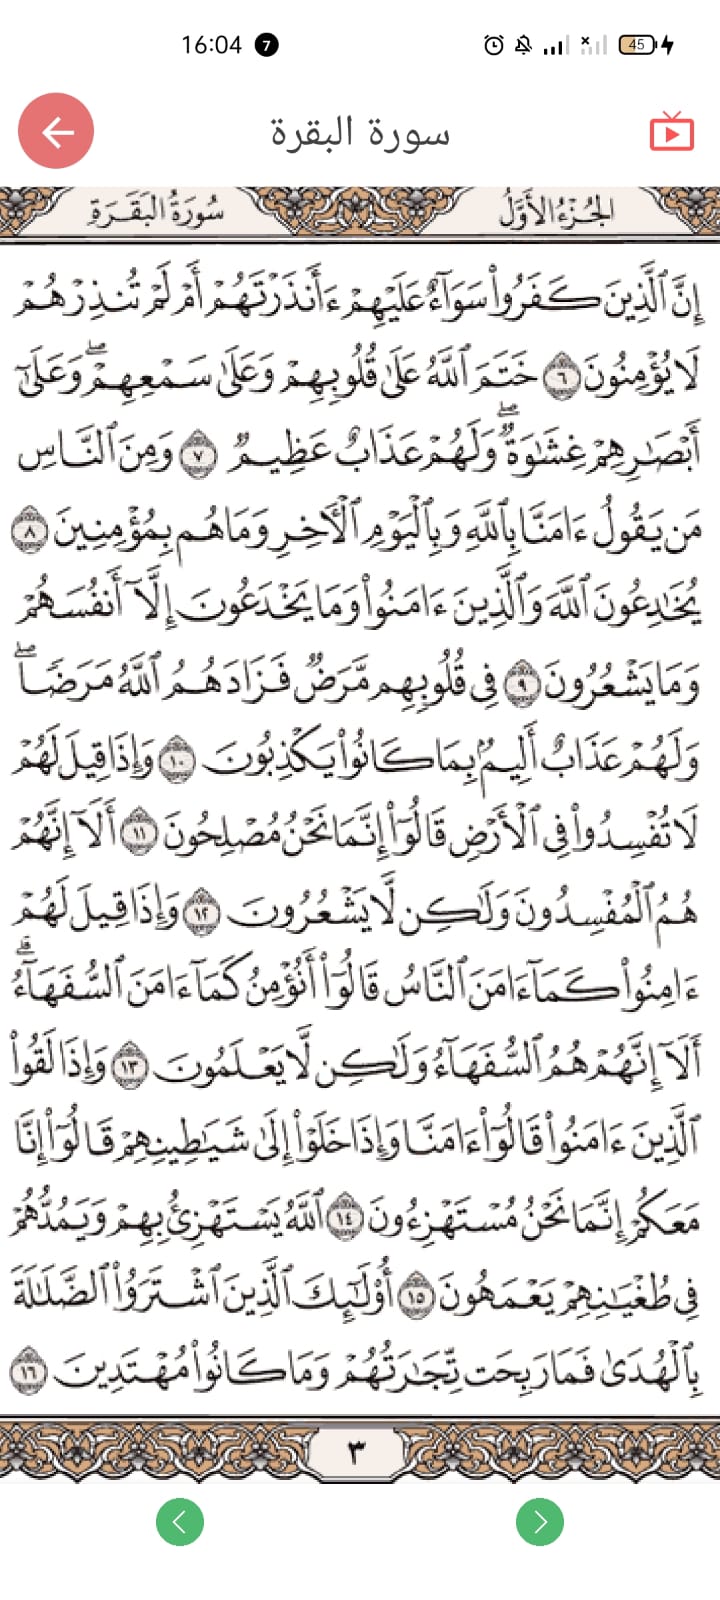 16:04 7
45
سورة البقرة
سُورَةُ البَقَرَةِ
الجُزْءُ الأَوَّلُ
إِنَّ ٱلَّذِينَ كَفَرُوا۟ سَوَآءٌ عَلَيْهِمْ ءَأَنذَرْتَهُمْ أَمْ لَمْ تُنذِرْهُمْ
لَا يُؤْمِنُونَ ٦ خَتَمَ ٱللَّهُ عَلَىٰ قُلُوبِهِمْ وَعَلَىٰ سَمْعِهِمْ ۖ وَعَلَىٰٓ
أَبْصَـٰرِهِمْ غِشَـٰوَةٌ ۖ وَلَهُمْ عَذَابٌ عَظِيمٌ ٧ وَمِنَ ٱلنَّاسِ
مَن يَقُولُ ءَامَنَّا بِٱللَّهِ وَبِٱلْيَوْمِ ٱلْـَٔاخِرِ وَمَا هُم بِمُؤْمِنِينَ ٨
يُخَـٰدِعُونَ ٱللَّهَ وَٱلَّذِينَ ءَامَنُوا۟ وَمَا يَخْدَعُونَ إِلَّآ أَنفُسَهُمْ
وَمَا يَشْعُرُونَ ٩ فِى قُلُوبِهِم مَّرَضٌ فَزَادَهُمُ ٱللَّهُ مَرَضًا ۖ
وَلَهُمْ عَذَابٌ أَلِيمٌۢ بِمَا كَانُوا۟ يَكْذِبُونَ ١٠ وَإِذَا قِيلَ لَهُمْ
لَا تُفْسِدُوا۟ فِى ٱلْأَرْضِ قَالُوٓا۟ إِنَّمَا نَحْنُ مُصْلِحُونَ ١١ أَلَآ إِنَّهُمْ
هُمُ ٱلْمُفْسِدُونَ وَلَـٰكِن لَّا يَشْعُرُونَ ١٢ وَإِذَا قِيلَ لَهُمْ
ءَامِنُوا۟ كَمَآ ءَامَنَ ٱلنَّاسُ قَالُوٓا۟ أَنُؤْمِنُ كَمَآ ءَامَنَ ٱلسُّفَهَآءُ ۗ
أَلَآ إِنَّهُمْ هُمُ ٱلسُّفَهَآءُ وَلَـٰكِن لَّا يَعْلَمُونَ ١٣ وَإِذَا لَقُوا۟
ٱلَّذِينَ ءَامَنُوا۟ قَالُوٓا۟ ءَامَنَّا وَإِذَا خَلَوْا۟ إِلَىٰ شَيَـٰطِينِهِمْ قَالُوٓا۟ إِنَّا
مَعَكُمْ إِنَّمَا نَحْنُ مُسْتَهْزِءُونَ ١٤ ٱللَّهُ يَسْتَهْزِئُ بِهِمْ وَيَمُدُّهُمْ
فِى طُغْيَـٰنِهِمْ يَعْمَهُونَ ١٥ أُو۟لَـٰٓئِكَ ٱلَّذِينَ ٱشْتَرَوُا۟ ٱلضَّلَـٰلَةَ
بِٱلْهُدَىٰ فَمَا رَبِحَت تِّجَـٰرَتُهُمْ وَمَا كَانُوا۟ مُهْتَدِينَ ١٦
٣